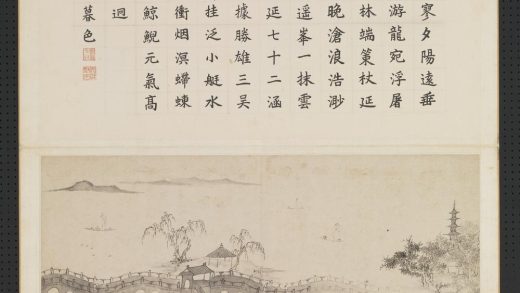 寥夕陽遠垂
游龍宛浮屠
林端策杖延
晚滄浪浩渺
遥峯一抹雲
延七十二涵
據勝雄三吳
挂泛小艇水
衝烟溟螮蝀
鯨鯢元氣髙
暮色